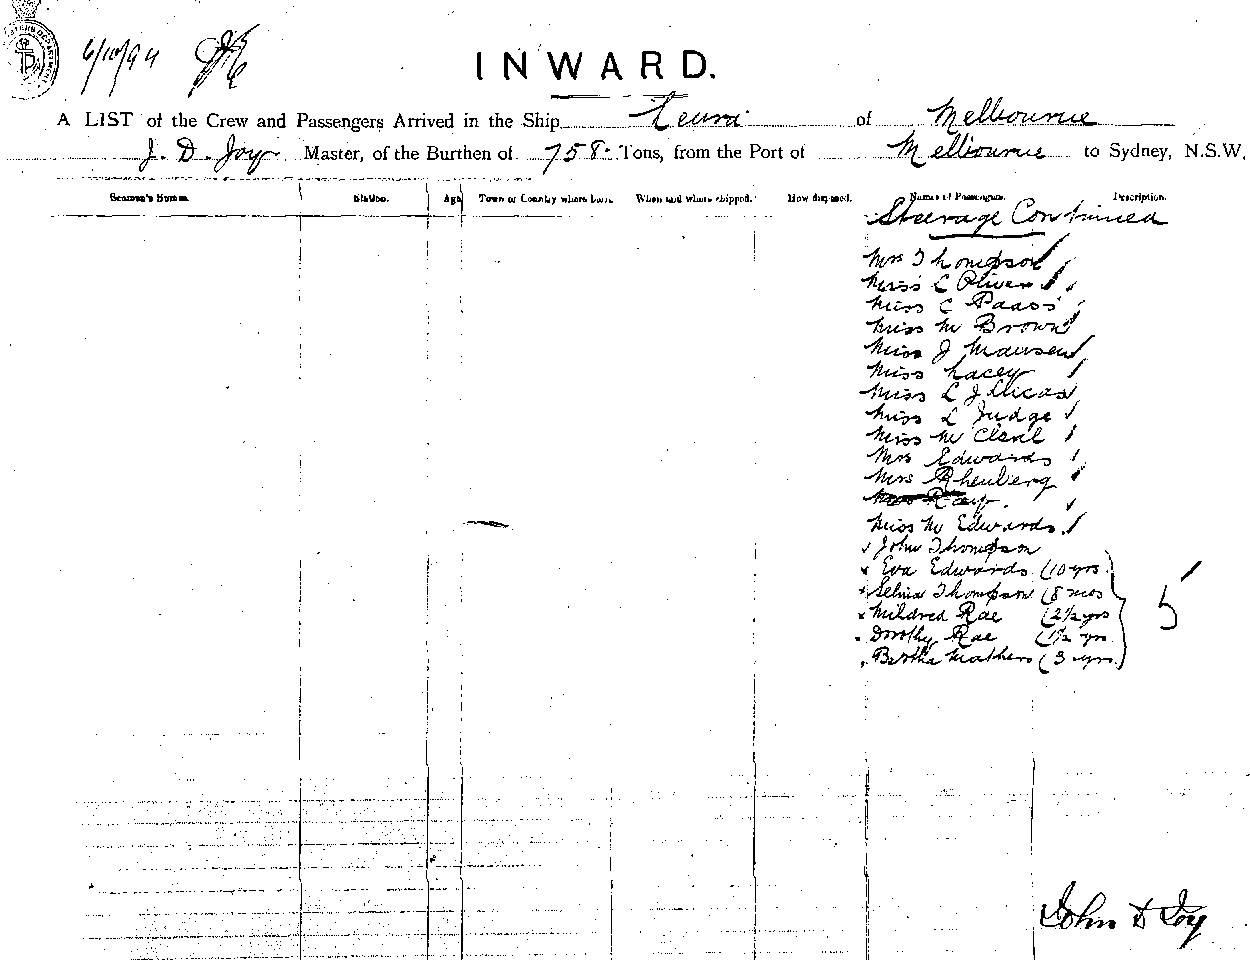 6/10/94
INWARD.
A LIST of the Crew and Passengers Arrived in the Ship Leura of Melbourne
J. D. Joy Master, of the Burthen of 758 Tons, from the Port of Melbourne to Sydney, N.S.W.
Seaman's Names. Station. Age Town or Country where born. When and where shipped. How disposed. Names of Passengers. Description.
Steerage Continued
Mrs Thompson
Miss L Oliver
Miss C Paass
Miss M Brown
Miss J Mausen
Miss Lacey
Miss L J Lucas
Miss L Judge
Miss M
Mrs Edwards
Mrs Rheuberg
Ray.
Miss M Edwards
John Thompson
Eva Edwards (10 yrs
Selina Thompson (8 mos
Mildred Rae (2½ yrs
Dorothy Rae (1½ yrs
Bertha Mathers (3 yrs
5
John D Joy